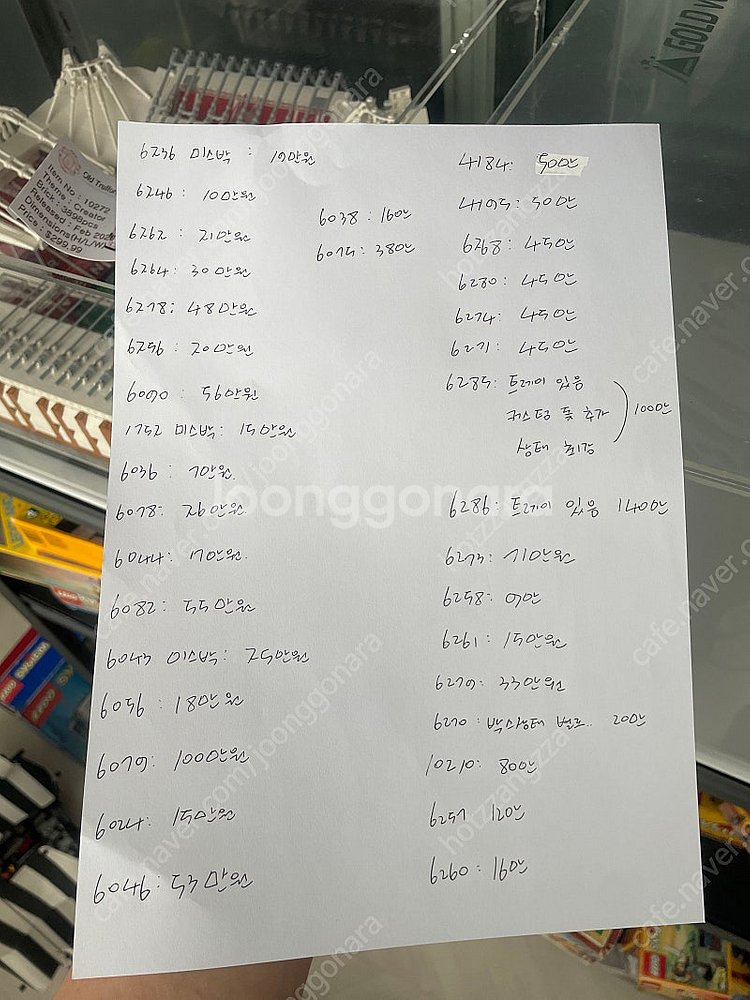 6236 미스박 : 19만원
6246 : 10만원
6262 : 21만원
6264 : 30만원
6278 : 48만원
6256 : 20만원
6090 : 56만원
1752 미스박 : 15만원
6036 : 7만원.
6078 : 26만원
6044 : 17만원.
6082 : 55만원
6043 미스박 : 25만원
6056 : 18만원
6079 : 100만원
6024 : 15만원
6046 : 53만원
6038 : 16만
6075 : 38만
4184 : 50만
4195 : 50만
6268 : 45만
6280 : 45만
6274 : 45만
6271 : 45만
6285 : 트레이 있음
커스텀 돛 추가
상태 최강
100만
6286 : 트레이 있음 140만
6273 : 71만원
6258 : 9만
6261 : 15만원
6279 : 33만원
6270 : 박스상태 별로.. 20만
10210 : 80만
6257 12만
6260 : 16만
Old Traffor
Item No : 10272
Theme : Creator
Brick : 3898pcs
Released : Feb 202
Dimensions(H/L/W)
Price : $299.99
GOLD
SYSTEM
LEGO
LEGO
joonggonara
cafe.naver.com/joonggonara